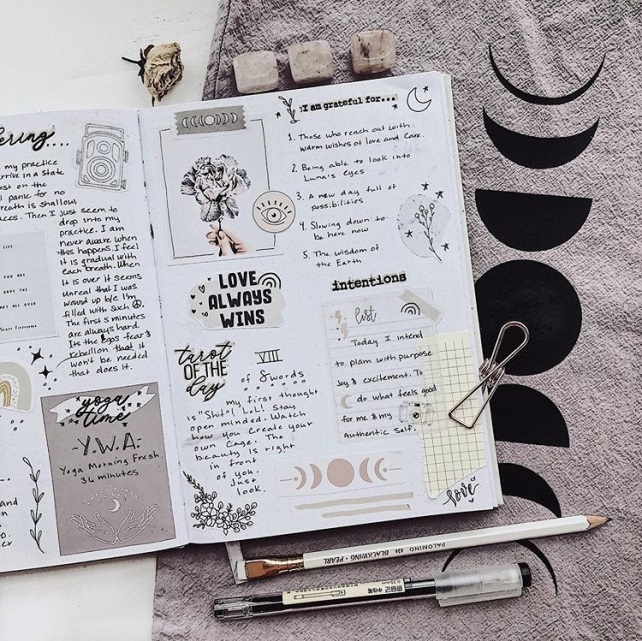 my practice
arrive in a state
on the
panic for no
breath is shallow
Then I just seem to
drop into my
practice. I am
never aware when
this happens. I feel
it is gradual with
each breath. When
it is over it seems
Unreal that I was
wound up b/c I'm
filled with such
The first 5 minutes
are always hard.
Its the egos fear &
rebellion that it
won't be needed
that does it.
LIFE
YOU ARE
yoga
time
-Y.W.A-
Yoga Morning Fresh
36 minutes
and
LOVE
ALWAYS
WINS
tarot
OF THE
day
VIII
of Swords
my first thought
is "Shit! LoL! Stay
open minded. Watch
how you Create your
own Cage. The
beauty is right
in front
of you.
Just
look.
I am grateful for...
1. Those who reach out with
Warm wishes of love and Care.
2. Being able to look into
Luna's eyes
3. A new day full of
possibilities
4. Slowing down to
be here now
5. The wisdom of
the Earth
intentions
list
Today I intend
to plan with purpose
Joy & excitement. To
do what feels good
for me & my
Authentic Self.
love
PALOMINO BLACKWING PEARL